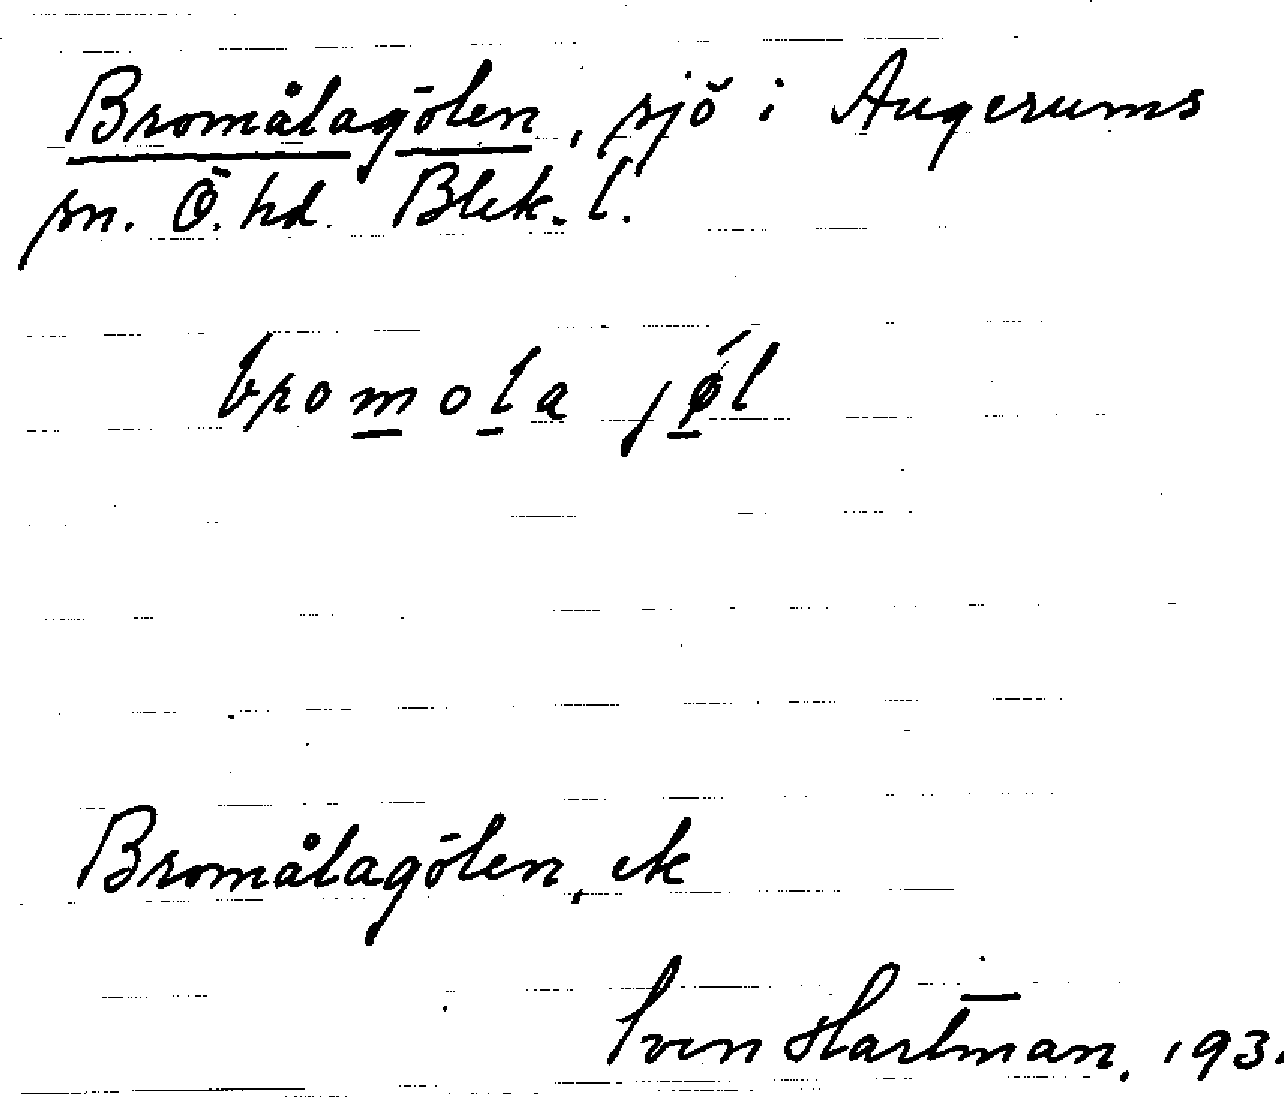 Bromålagölen, sjö i Augerums
sn. Ö. hd. Blek. l.
bromola jøl
Bromålagölen, ek
Sven Hartman. 193